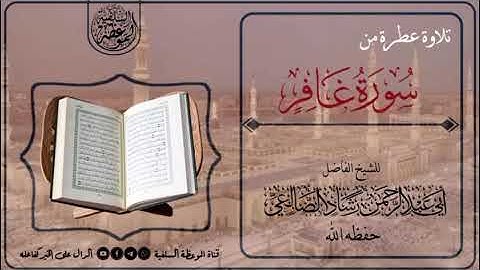 تلاوة عطرة من
سُورَةُ غَافِرٍ
للشيخ الفاضل
أبي عبد الرحمن رشاد الضالعي
حفظه الله
قناة الموعظة السلفية
الدال على الخير كفاعله